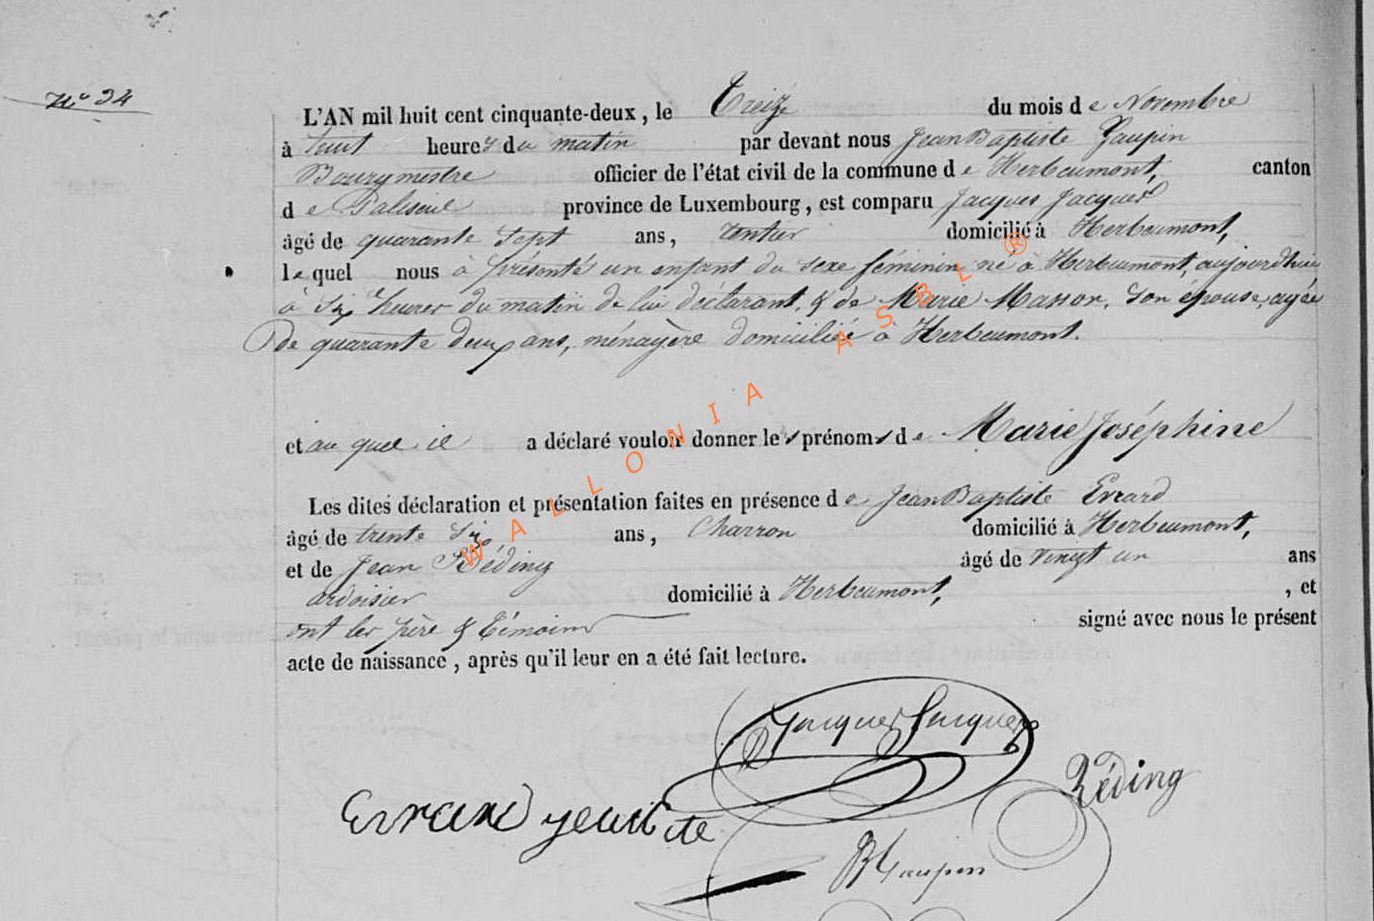 N° 34
L'AN mil huit cent cinquante-deux, le Treize du mois de Novembre
à huit heures du matin par devant nous Jean Baptiste Gaupin
Bourgmestre officier de l'état civil de la commune de Herbeumont, canton
de Paliseul province de Luxembourg, est comparu Jacques Jacques
âgé de quarante Sept ans, rentier domicilié à Herbeumont,
lequel nous à présenté un enfant du sexe féminin né à Herbeumont, aujourdhui
à Six heures du matin de lui déclarant, & de Marie Masson, son épouse, agée
De quarante deux ans, ménagère domiciliée à Herbeumont.
et au quel il a déclaré vouloir donner les prénoms de Marie Joséphine
Les dites déclaration et présentation faites en présence de Jean Baptiste Evrard
âgé de trente Six ans, Charron domicilié à Herbeumont,
et de Jean Réding âgé de vingt un ans
ardoisier domicilié à Herbeumont, , et
ont les père & témoins signé avec nous le présent
acte de naissance, après qu'il leur en a été fait lecture.
Jacques Jacques
Réding
Evrard jean bte
JB Gaupin
WALLONIA ASBL ®